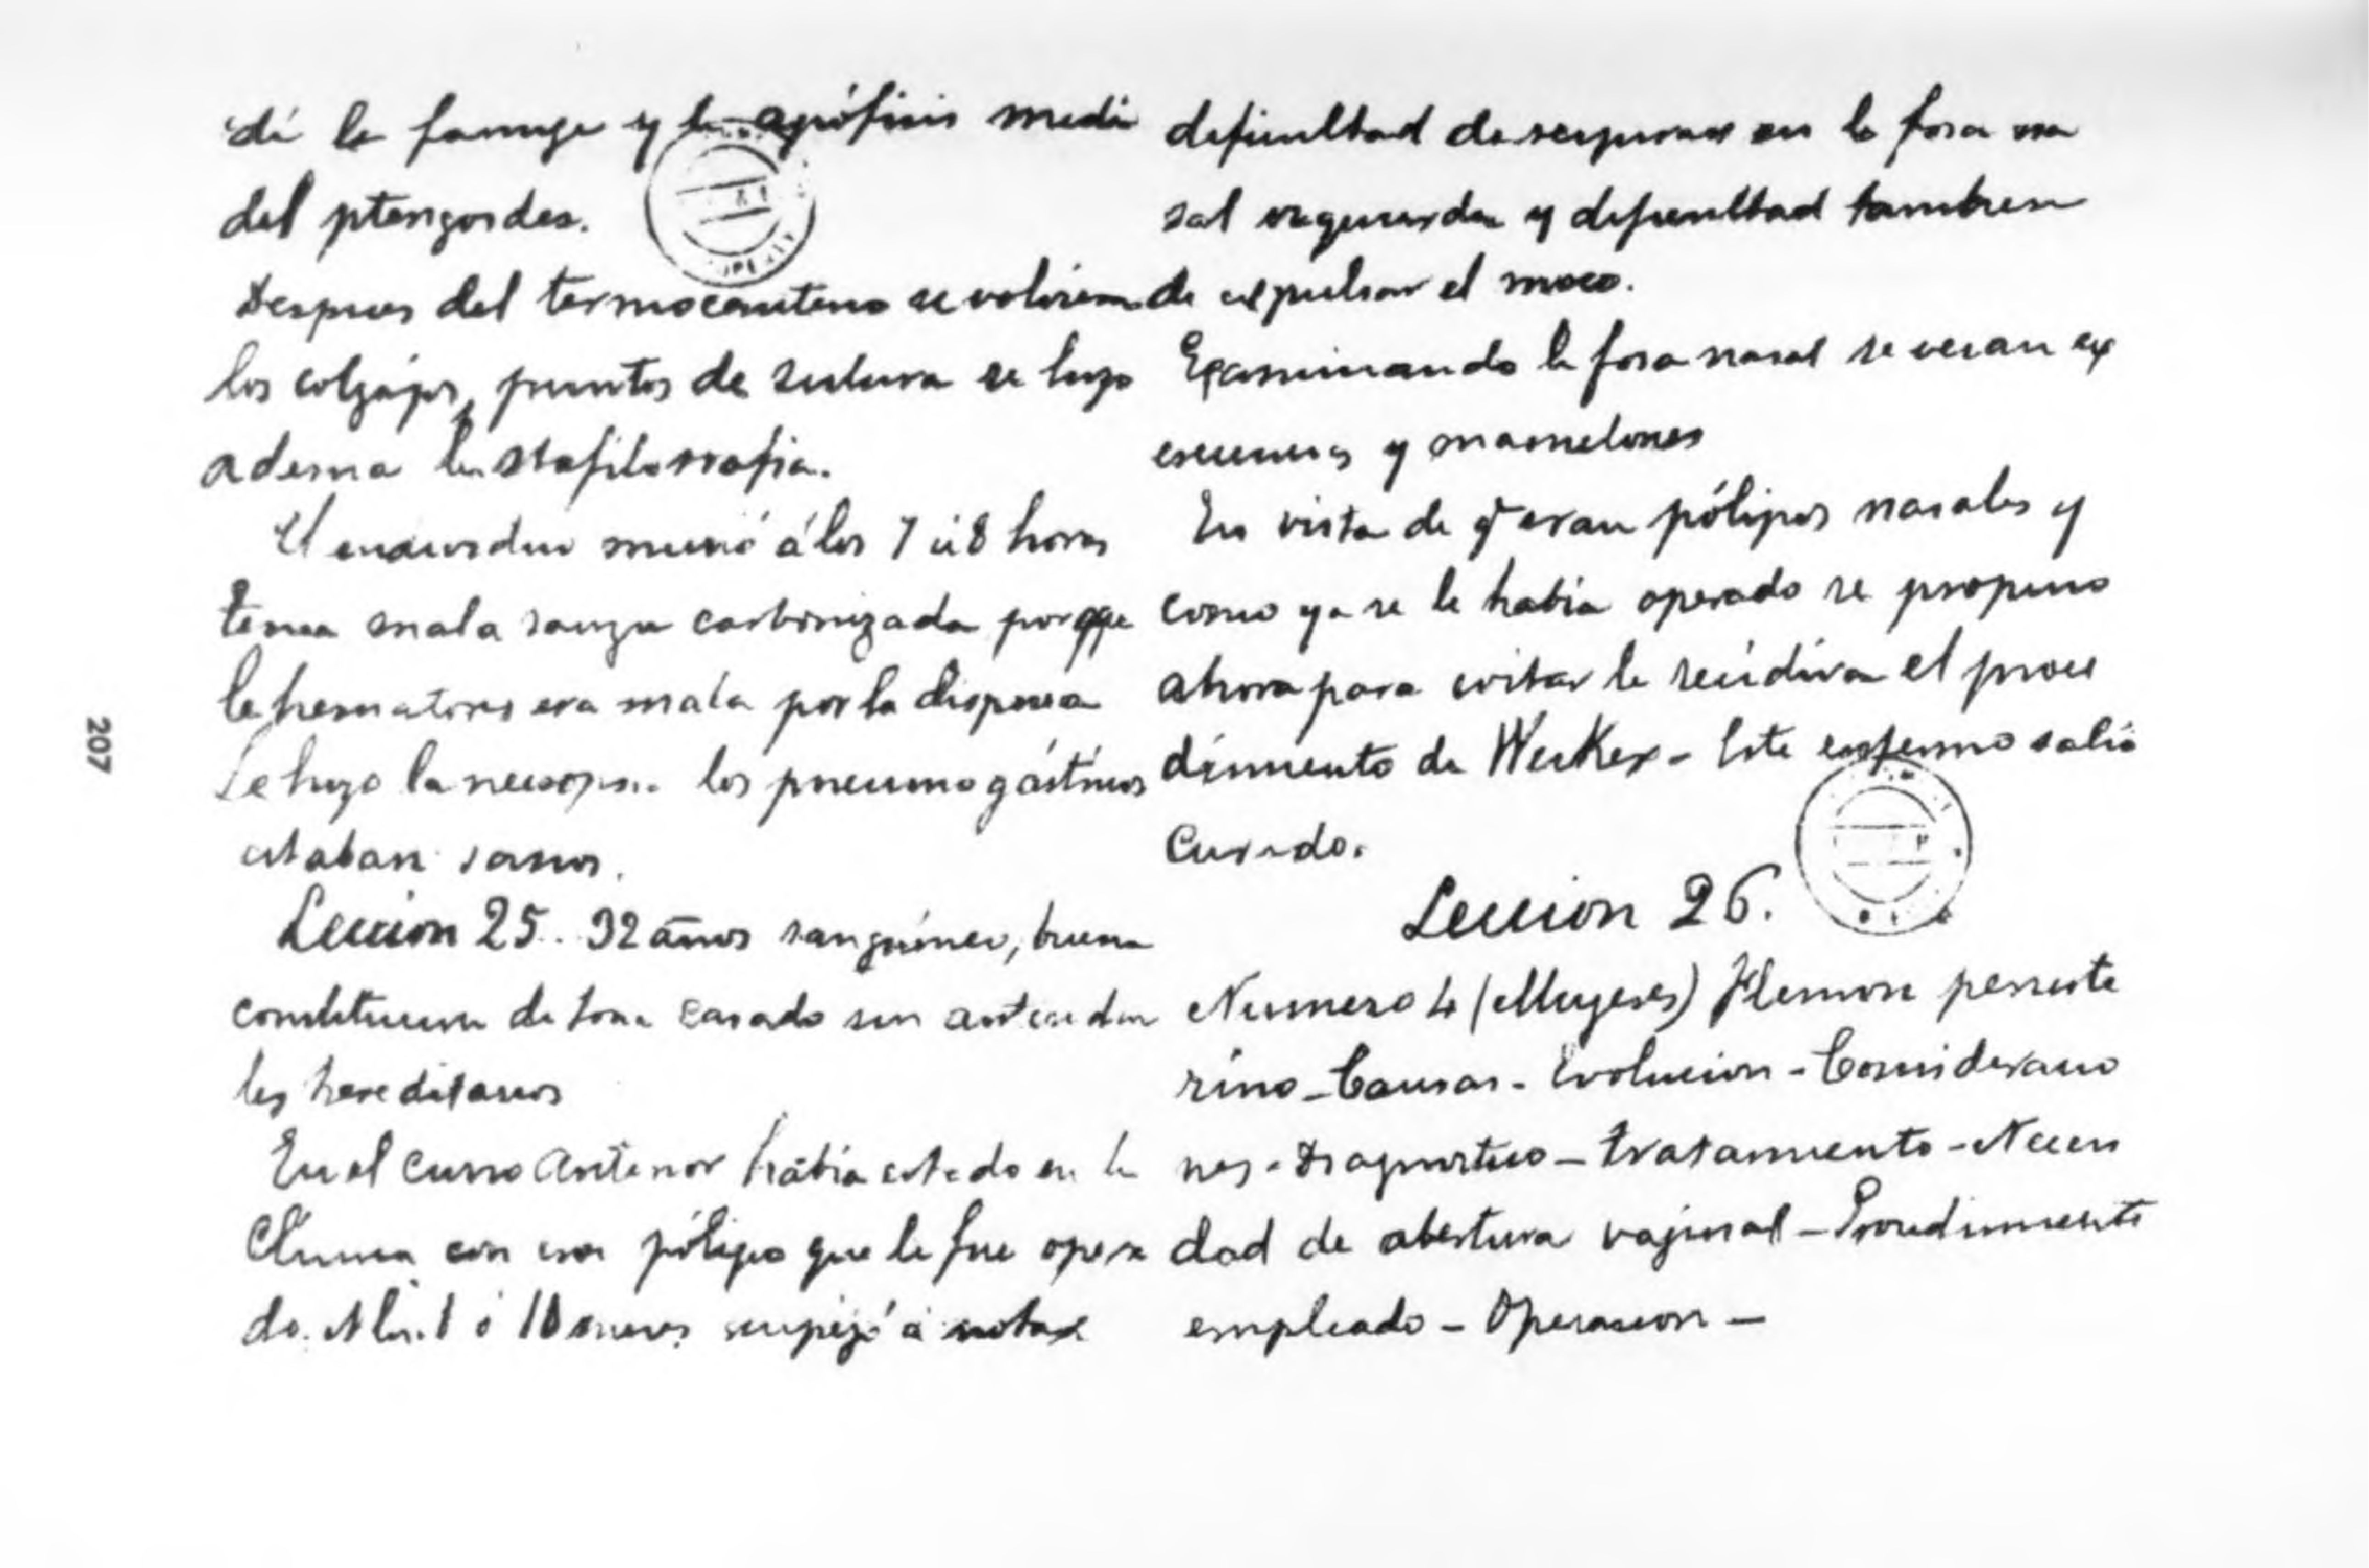 de la faringe y la apófisis medi
del pterigoides.
Despues del termocauterio se volvieron
los colgajos, puntos de sutura se hizo
adema la stafilorrafia.
El individuo murió á las 7 ú 8 horas
tenia mala sangre carbonizada porque
la hematosis era mala por la dispnea
Se hizo la necropsia los pneumogástricos
estaban sanos.
Leccion 25. 32 años sanguineo, buena
constitucion casado sin anteceden
tes hereditarios
En el curso anterior habia estado en la
Clinica con un pólipo que le fue opera
do. A los ó 10 meses empezó á notar
dificultad de respirar en la fosa na
sal izquierda y dificultad tambien
de expulsar el moco.
Examinando la fosa nasal se veian ex
crecencias y mamelones
En vista de q eran pólipos nasales y
como ya se le habia operado se propuso
ahora para evitar la recidiva el proce
dimiento de Este enfermo salió
curado.
Leccion 26.
Numero 4 (Mugeres) Flemon periute
rino - Causas - Evolucion - Consideracio
nes - Diagnostico - tratamiento - Necesi
dad de abertura vajinal - Procedimiento
empleado - Operacion -
207